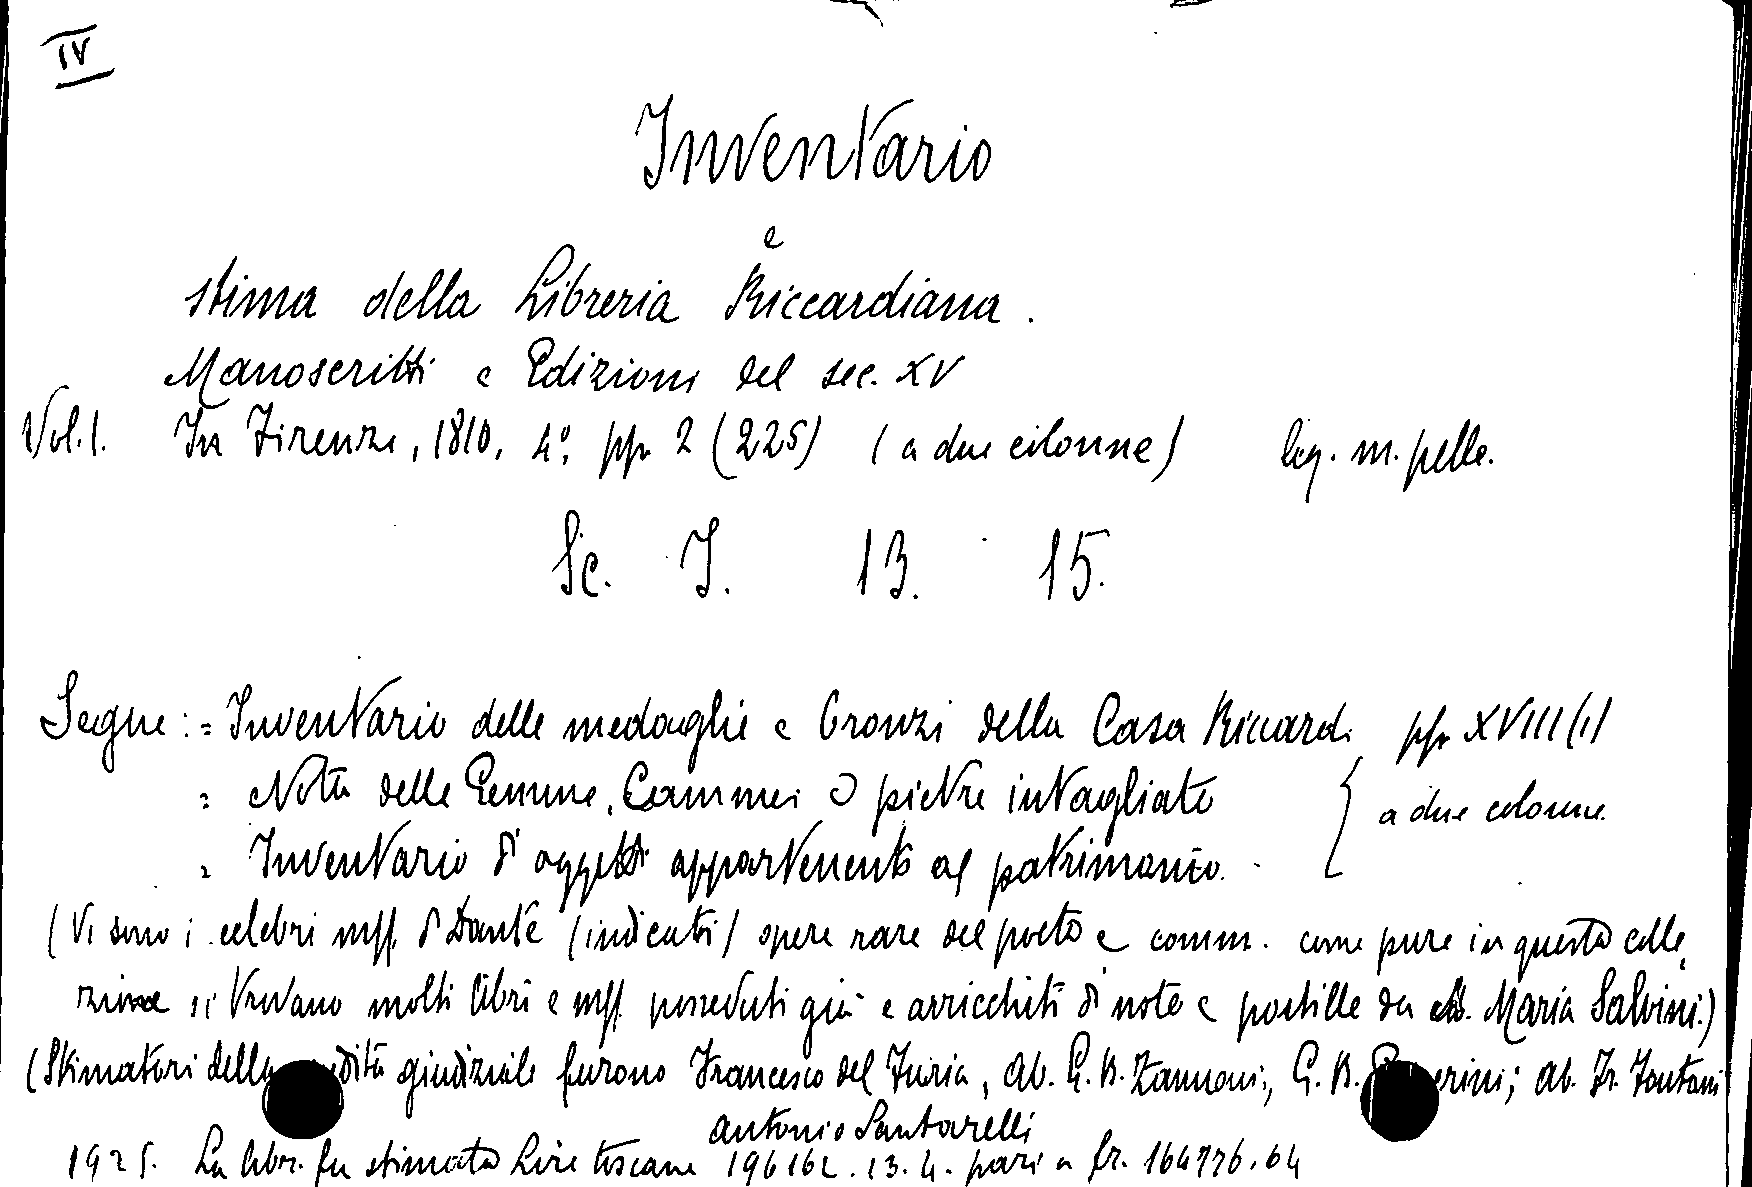 IV
Inventario
e
stima della Libreria Riccardiana.
Manoscritti e Edizioni del sec. XV
Vol. I. In Firenze, 1810, 4°, pp. 2 (225) (a due colonne) leg. m. pelle.
Sc. I. 13. 15.
Segue: = Inventario delle medaglie e bronzi della Casa Riccardi pp. XVIII (1)
= Nota delle Gemme, Cammei o pietre intagliate
a due colonne.
= Inventario di oggetti appartenenti al patrimonio.
(Vi sono i celebri mss. di Dante (indicati) opere rare del poeta e comm. come pure in questa colle
zione si trovano molti libri e mss. posseduti già e arricchiti di note e postille da Maria Salvini.)
(Stimatori della giudiziale furono Francesco del Furia, Ab. G. B. Zannoni, G. B. ; Ab. Fr. Fontani
Antonio Santarelli
1925. La libr. fu stimata Lire toscane 196162.13.4. pari a fr. 164776.64